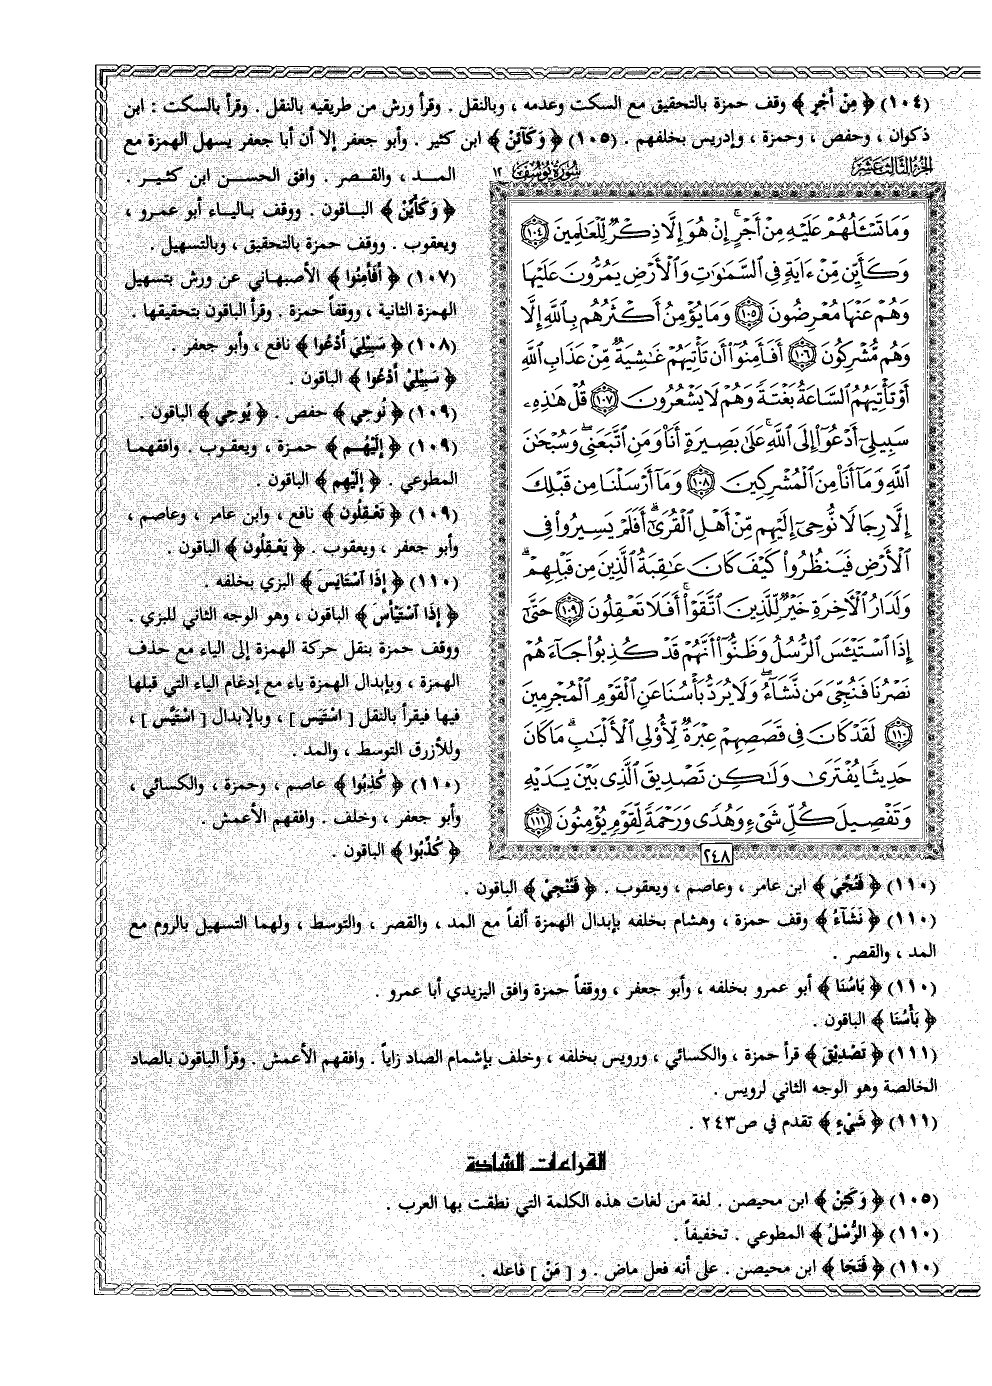 (١٠٤) ﴿ مِنْ أَجْرٍ ﴾ وقف حمزة بالتحقيق مع السكت وعدمه ، وبالنقل . وقرأ ورش من طريقيه بالنقل . وقرأ بالسكت : ابن
ذكوان ، وحفص ، وحمزة ، وإدريس بخلفهم . (١٠٥) ﴿ وَكَآئِنْ ﴾ ابن كثير . وأبو جعفر إلا أن أبا جعفر يسهل الهمزة مع
المـد ، والقـصر . وافق الحسـن ابن كثـير .
﴿ وَكَأَيِّنْ ﴾ الباقون . ووقف بالياء أبو عمرو ،
ويعقوب . ووقف حمزة بالتحقيق ، وبالتسهيل .
(١٠٧) ﴿ أَفَأَمِنُوا ﴾ الأصبهاني عن ورش بتسهيل
الهمزة الثانية ، ووقفاً حمزة . وقرأ الباقون بتحقيقها .
(١٠٨) ﴿ سَبِيلِيَ أَدْعُوا ﴾ نافع ، وأبو جعفر .
﴿ سَبِيلِيْ أَدْعُوا ﴾ الباقون .
(١٠٩) ﴿ نُوحِي ﴾ حفص . ﴿ يُوحِي ﴾ الباقون .
(١٠٩) ﴿ إِلَيْهُم ﴾ حمزة ، ويعقوب . وافقهما
المطوعي . ﴿ إِلَيْهِم ﴾ الباقون .
(١٠٩) ﴿ تَعْقِلُون ﴾ نافع ، وابن عامر ، وعاصم ،
وأبو جعفر ، ويعقوب . ﴿ يَعْقِلُون ﴾ الباقون .
(١١٠) ﴿ إِذَا اسْتَايَسَ ﴾ البزي بخلفه .
﴿ إِذَا اسْتَيْأَسَ ﴾ الباقون ، وهو الوجه الثاني للبزي .
ووقف حمزة بنقل حركة الهمزة إلى الياء مع حذف
الهمزة ، وبإبدال الهمزة ياء مع إدغام الياء التي قبلها
فيها فيقرأ بالنقل [ اسْتَيَس ] ، وبالإبدال [ اسْتَيَّس ] ،
وللأزرق التوسط ، والمد .
(١١٠) ﴿ كُذِبُوا ﴾ عاصم ، وحمزة ، والكسائي ،
وأبو جعفر ، وخلف . وافقهم الأعمش .
﴿ كُذِّبُوا ﴾ الباقون .
الجزء الثالث عشر
سورة يوسف ١٢
وَمَا تَسْـَٔلُهُمْ عَلَيْهِ مِنْ أَجْرٍ ۚ إِنْ هُوَ إِلَّا ذِكْرٌ لِّلْعَٰلَمِينَ ١٠٤
وَكَأَيِّن مِّنْ ءَايَةٍ فِى السَّمَٰوَٰتِ وَالْأَرْضِ يَمُرُّونَ عَلَيْهَا
وَهُمْ عَنْهَا مُعْرِضُونَ ١٠٥ وَمَا يُؤْمِنُ أَكْثَرُهُم بِاللَّهِ إِلَّا
وَهُم مُّشْرِكُونَ ١٠٦ أَفَأَمِنُوٓا۟ أَن تَأْتِيَهُمْ غَٰشِيَةٌ مِّنْ عَذَابِ اللَّهِ
أَوْ تَأْتِيَهُمُ السَّاعَةُ بَغْتَةً وَهُمْ لَا يَشْعُرُونَ ١٠٧ قُلْ هَٰذِهِۦ
سَبِيلِىٓ أَدْعُوٓا۟ إِلَى اللَّهِ ۚ عَلَىٰ بَصِيرَةٍ أَنَا۠ وَمَنِ اتَّبَعَنِى ۖ وَسُبْحَٰنَ
اللَّهِ وَمَآ أَنَا۠ مِنَ الْمُشْرِكِينَ ١٠٨ وَمَآ أَرْسَلْنَا مِن قَبْلِكَ
إِلَّا رِجَالًا نُّوحِىٓ إِلَيْهِم مِّنْ أَهْلِ الْقُرَىٰٓ ۗ أَفَلَمْ يَسِيرُوا۟ فِى
الْأَرْضِ فَيَنظُرُوا۟ كَيْفَ كَانَ عَٰقِبَةُ الَّذِينَ مِن قَبْلِهِمْ ۗ
وَلَدَارُ الْـَٔاخِرَةِ خَيْرٌ لِّلَّذِينَ اتَّقَوْا۟ ۗ أَفَلَا تَعْقِلُونَ ١٠٩ حَتَّىٰٓ
إِذَا اسْتَيْـَٔسَ الرُّسُلُ وَظَنُّوٓا۟ أَنَّهُمْ قَدْ كُذِبُوا۟ جَآءَهُمْ
نَصْرُنَا فَنُجِّىَ مَن نَّشَآءُ ۖ وَلَا يُرَدُّ بَأْسُنَا عَنِ الْقَوْمِ الْمُجْرِمِينَ
١١٠ لَقَدْ كَانَ فِى قَصَصِهِمْ عِبْرَةٌ لِّأُو۟لِى الْأَلْبَٰبِ ۗ مَا كَانَ
حَدِيثًا يُفْتَرَىٰ وَلَٰكِن تَصْدِيقَ الَّذِى بَيْنَ يَدَيْهِ
وَتَفْصِيلَ كُلِّ شَىْءٍ وَهُدًى وَرَحْمَةً لِّقَوْمٍ يُؤْمِنُونَ ١١١
٢٤٨
(١١٠) ﴿ فَنُجِّيَ ﴾ ابن عامر ، وعاصم ، ويعقوب . ﴿ فَنُنْجِيْ ﴾ الباقون .
(١١٠) ﴿ نَشَآءُ ﴾ وقف حمزة ، وهشام بخلفه بإبدال الهمزة ألفاً مع المد ، والقصر ، والتوسط ، ولهما التسهيل بالروم مع
المد ، والقصر .
(١١٠) ﴿ بَاسُنَا ﴾ أبو عمرو بخلفه ، وأبو جعفر ، ووقفاً حمزة وافق اليزيدي أبا عمرو .
﴿ بَأْسُنَا ﴾ الباقون .
(١١١) ﴿ تَصْدِيْقَ ﴾ قرأ حمزة ، والكسائي ، ورويس بخلفه ، وخلف بإشمام الصاد زاياً . وافقهم الأعمش . وقرأ الباقون بالصاد
الخالصة وهو الوجه الثاني لرويس .
(١١١) ﴿ شَيْءٍ ﴾ تقدم في ص٢٤٣ .
القراءات الشاذة
(١٠٥) ﴿ وَكَئِنْ ﴾ ابن محيصن . لغة من لغات هذه الكلمة التي نطقت بها العرب .
(١١٠) ﴿ الرُّسْلُ ﴾ المطوعي . تخفيفاً .
(١١٠) ﴿ فَنَجَا ﴾ ابن محيصن . على أنه فعل ماض . و [ مَنْ ] فاعله .